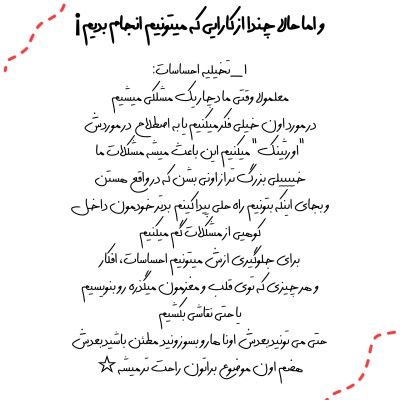 و اما حالا چندا از کارایی که میتونیم انجام بدیم!
۱_تخیلیه احساسات:
معلمولا وقتی ما دچار یک مشکلی میشیم
در مورد اون خیلی فکر میکنیم یا به اصطلاح در موردش
"اورثینک" میکنیم این باعث میشه مشکلات ما
خیییلی بزرگ تر از اونی بشن که در واقع هستن
و بجای اینکه بتونیم راه حلی پیدا کینم بدتر خودمون داخل
کوهیی از مشکلات گم میکنیم
برای جلوگیری ازش میتونیم احساسات، افکار
و هر چیزی که توی قلب و مغزمون میگذره رو بنویسیم
یا حتی نقاشی بکشیم
حتی می تونید بعدش اونا هارو بسوزونید مطئن باشید بعدش
هضم اون موضوع براتون راحت تر میشه ☆